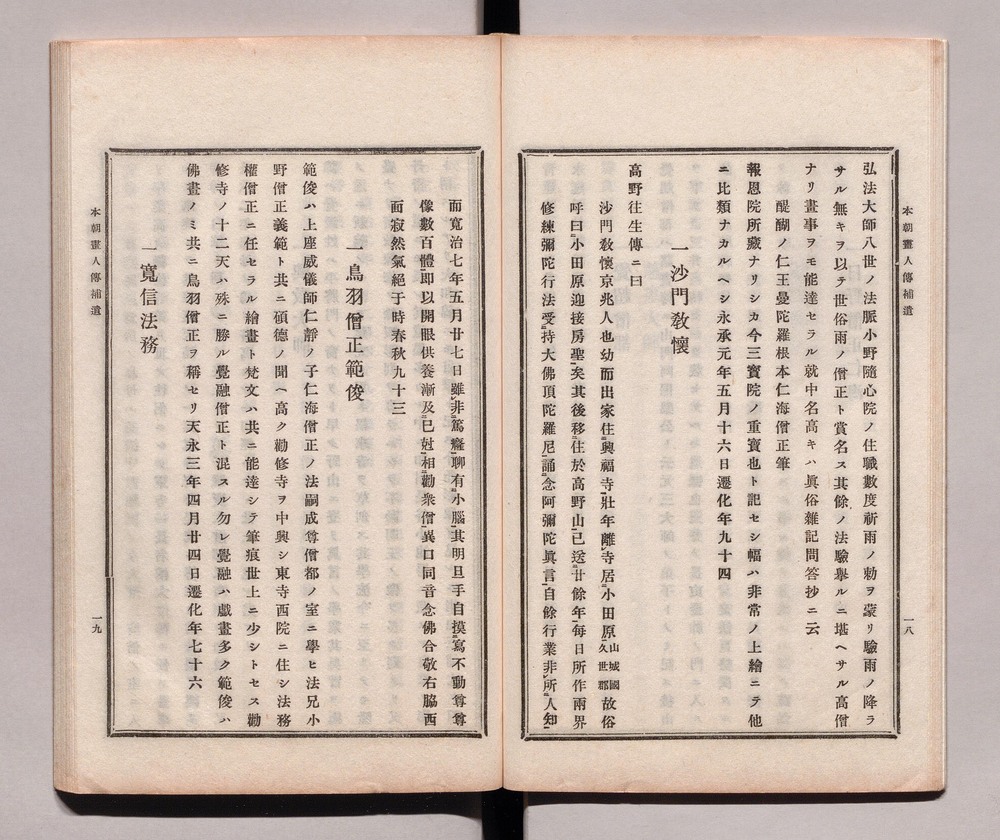 本朝畫人傳補遺
一八
弘法大師八世ノ法脈小野隨心院ノ住職數度祈雨ノ勅ヲ蒙リ驗雨ノ降ラ
サル無キヲ以テ世俗雨ノ僧正ト賞名ス其餘ノ法驗擧ルニ堪ヘサル高僧
ナリ畫事ヲモ能達セラル就中名高キハ眞俗雜記問答抄ニ云
醍醐ノ仁王曼陀羅根本仁海僧正筆
報恩院所藏ナリシカ今三寳院ノ重寶也ト記セシ幅ハ非常ノ上繪ニテ他
ニ比類ナカルヘシ永承元年五月十六日遷化年九十四
一沙門敎懷
高野往生傳ニ曰
沙門敎懷京兆人也幼而出家住興福寺壯年離寺居小田原山城國久世郡故俗
呼曰小田原迎接房聖矣其後移住於高野山已送廿餘年每日所作兩界
修練彌陀行法受持大佛頂陀羅尼誦念阿彌陀眞言自餘行業非所人知
而寬治七年五月廿七日雖非篤癃聊有小腦其明旦手自摸寫不動尊尊
像數百體卽以開眼供養漸及已尅相勸衆僧異口同音念佛合敬右脇西
面寂然氣絕于時春秋九十三
一鳥羽僧正範俊
範俊ハ上座威儀師仁靜ノ子仁海僧正ノ法嗣成尊僧都ノ室ニ學ヒ法兄小
野僧正義範ト共ニ碩德ノ聞ヘ高ク勸修寺ヲ中興シ東寺西院ニ住シ法務
權僧正ニ任セラル繪畫ト梵文ハ共ニ能達シテ筆痕世上ニ少シトセス勸
修寺ノ十二天ハ殊ニ勝ル覺融僧正ト混スル勿レ覺融ハ戲畫多ク範俊ハ
佛畫ノミ共ニ鳥羽僧正ヲ稱セリ天永三年四月廿四日遷化年七十六
一寬信法務
本朝畫人傳補遺
一九